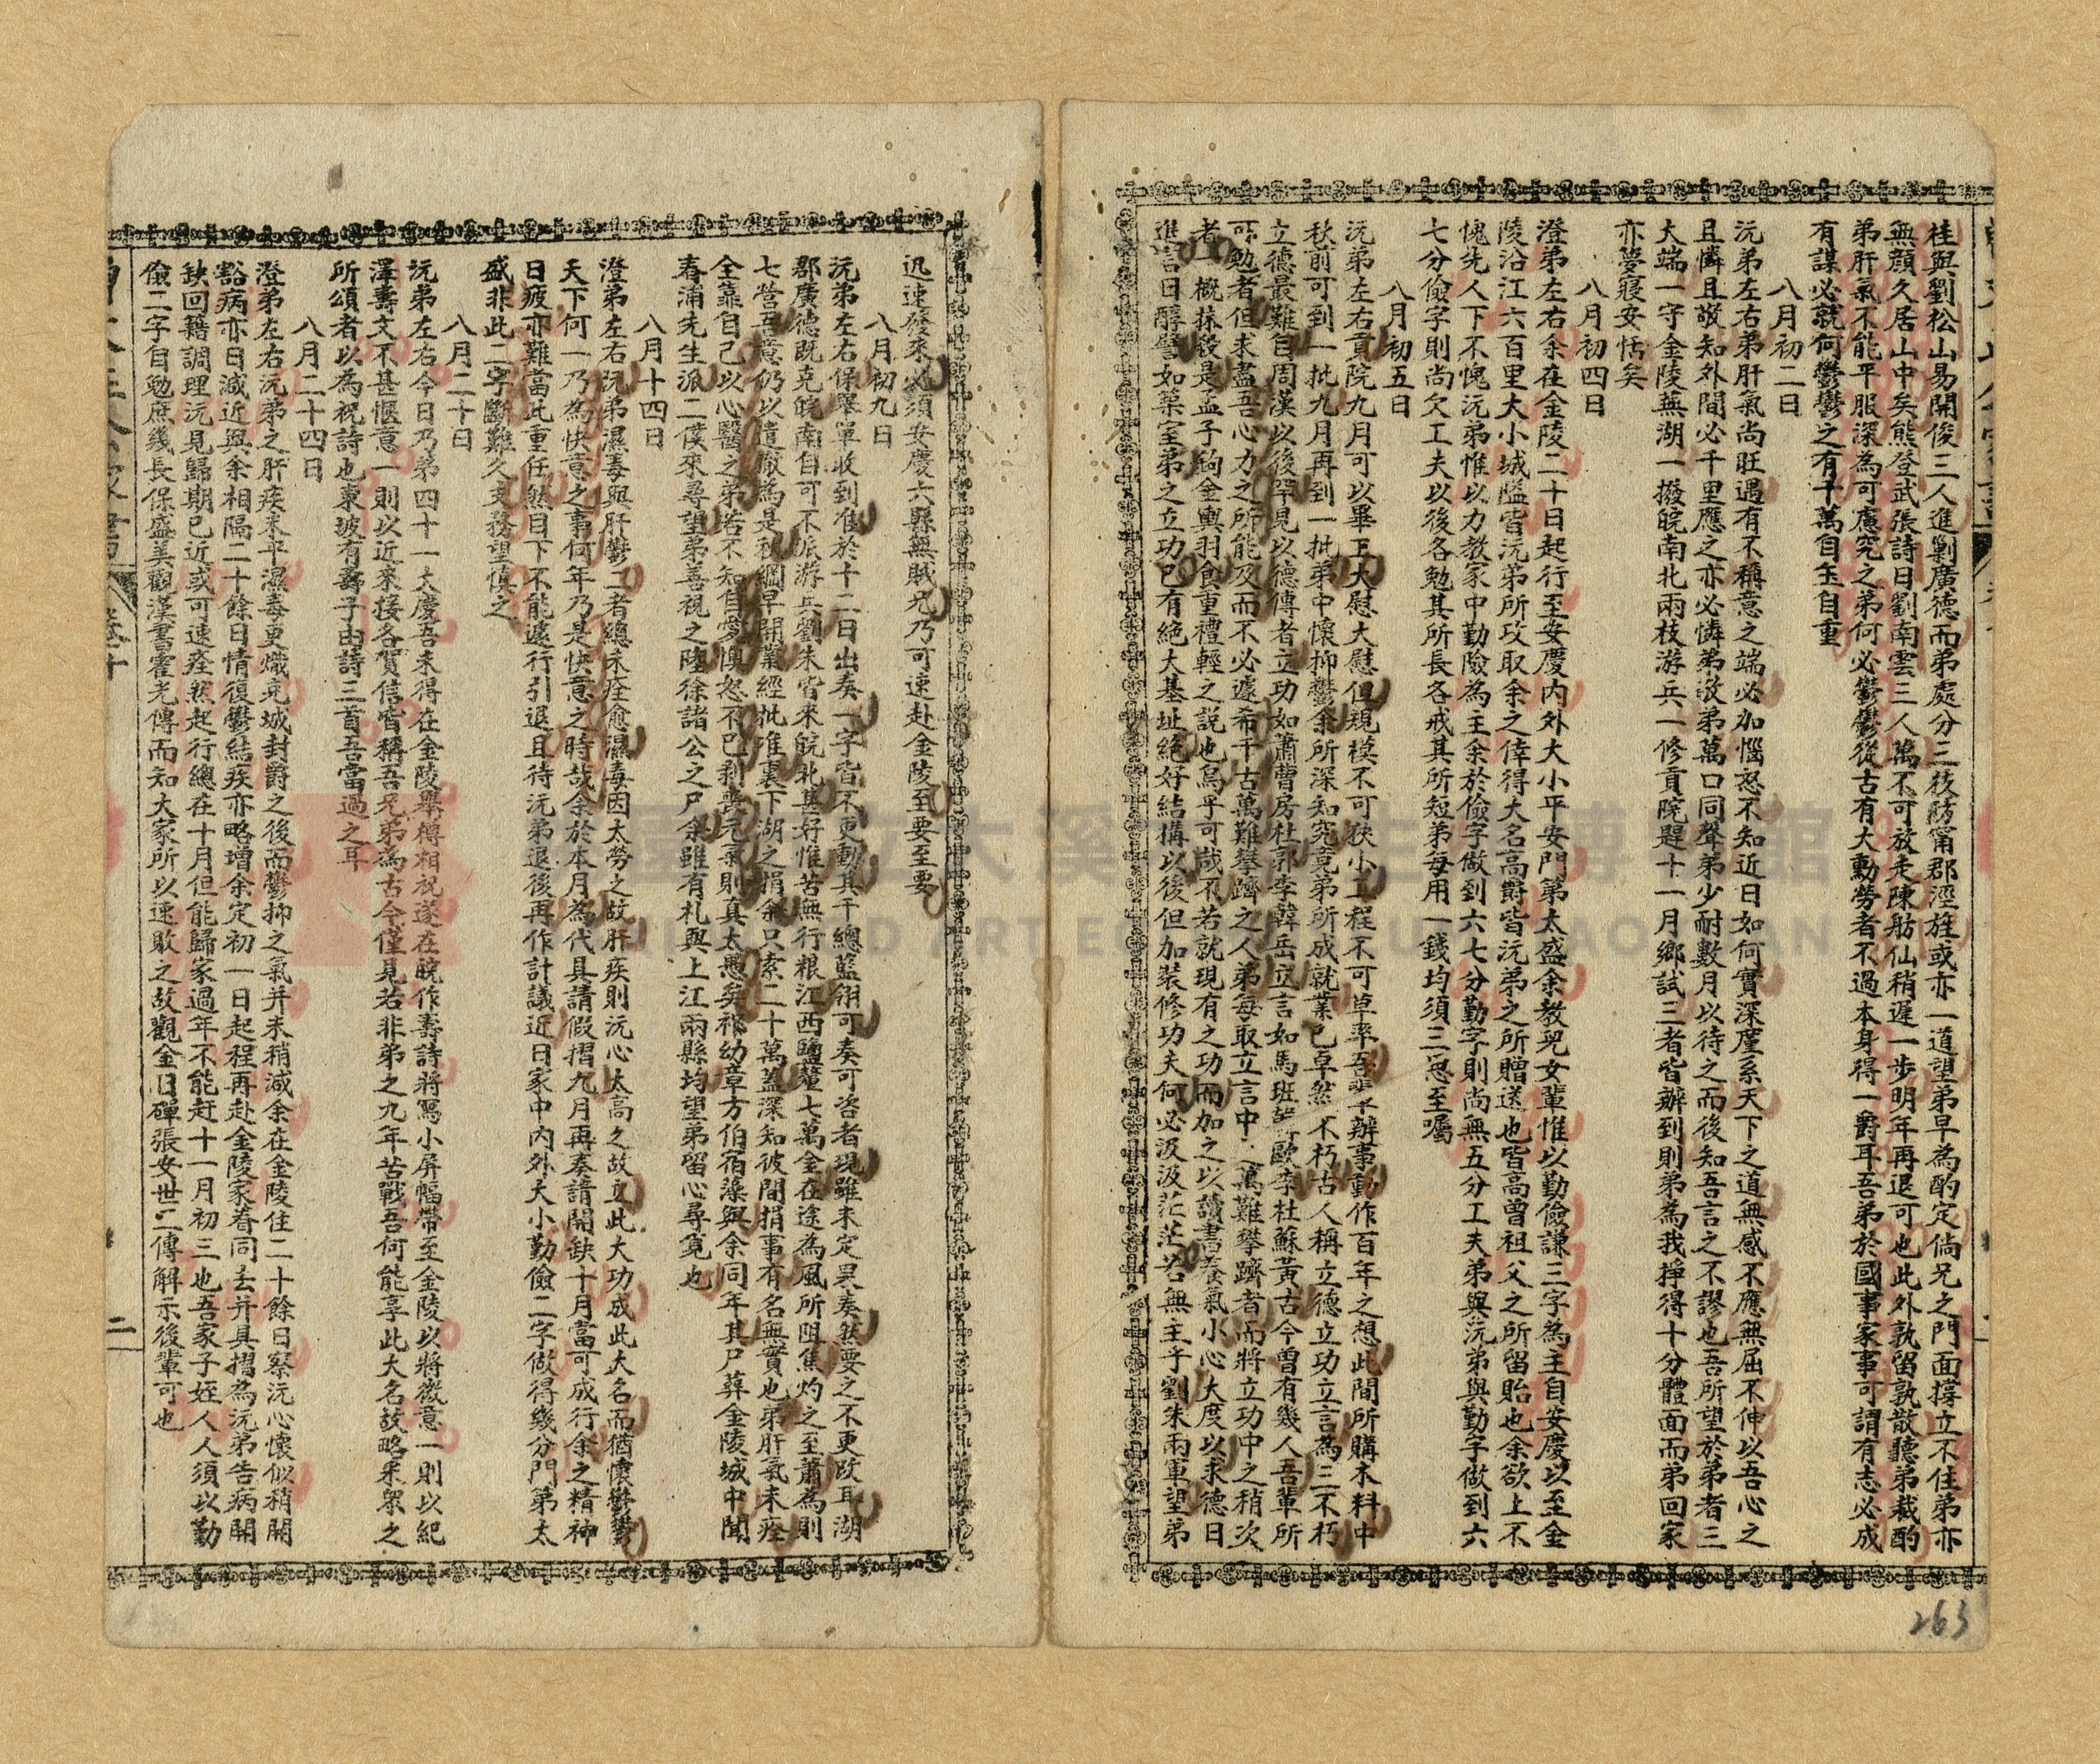 桂與劉松山易開俊三人進剿廣德而弟處分三枝防甯郡涇旌或亦一道望弟早為酌定倘兄之門面撐立不住弟亦
無顏久居山中矣熊登武張詩日劉南雲三人萬不可放走陳舫仙稍遲一步明年再退可也此外孰留孰散聽弟裁酌
弟肝氣不能平服深為可慮究之弟何必鬱鬱從古有大勳勞者不過本身得一爵耳吾弟於國事家事可謂有志必成
有謀必就何鬱鬱之有千萬自玉自重
八月初二日
沅弟左右弟肝氣尚旺遇有不稱意之端必加惱怒不知近日如何實深廑系天下之道無感不應無屈不伸以吾心之
且憐且敬知外間必千里應之亦必憐弟敬弟萬口同聲弟少耐數月以待之而後知吾言之不謬也吾所望於弟者三
大端一守金陵蕪湖一撥皖南北兩枝游兵一修貢院趕十一月鄉試三者皆辦到則弟為我掙得十分體面而弟回家
亦夢寢安恬矣
八月初四日
澄弟左右余在金陵二十日起行至安慶內外大小平安門第太盛余教兒女輩惟以勤儉謙三字為主自安慶以至金
陵沿江六百里大小城隘皆沅弟所攻取余之倖得大名高爵皆沅弟之所贈送也皆高曾祖父之所留貽也余欲上不
愧先人下不愧沅弟惟以力教家中勤險為主余於儉字做到六七分勤字則尚無五分工夫弟與沅弟與勤字做到六
七分儉字則尚欠工夫以後各勉其所長各戒其所短弟每用一錢均須三思至囑
八月初五日
沅弟左右貢院九月可以畢工大慰大慰但規模不可狹小工程不可草率吾輩辦事動作百年之想此間所購木料中
秋前可到一批九月再到一批弟中懷抑鬱余所深知究竟弟所成就業已卓然不朽古人稱立德立功立言為三不朽
立德最難自周漢以後罕見以德傳者立功如蕭曹房杜郭李韓岳立言如馬班韓歐李杜蘇黃古今曾有幾人吾輩所
可勉者但求盡吾心力之所能及而不必遽希千古萬難攀躋之人弟每取立言中之萬難攀躋者而將立功中之稍次
者一概抹殺是孟子鉤金輿羽食重禮輕之說也烏乎可哉不若就現有之功而加之以讀書養氣小心大度以求德日
進言日醇譬如築室弟之立功已有絕大基址絕好結構以後但加裝修功夫何必汲汲茫茫若無主乎劉朱兩軍望弟
迅速發來必須安慶六縣無賊兄乃可速赴金陵至要至要
八月初九日
沅弟左右保舉單收到准於十二日出奏一字皆不更動其千總藍翎可奏可咨者現雖未定具奏然要之不更改耳湖
郡廣德既克皖南自可不派游兵劉朱皆來皖北甚好惟苦無行糧江西鹽釐七萬金在途為風所阻焦灼之至蕭為則
七營吾意仍以遣撤為是秋綱早開業經批准裏下湖之捐余只索二十萬蓋深知彼間捐事有名無實也弟肝氣未痊
全靠自己以心醫之弟若不知自愛懊怒不已剝喪元氣則真太愚矣祁幼章方伯宿藻與余同年其尸葬金陵城中聞
春浦先生派二僕來尋望弟善視之陸徐諸公之尸余雖有札與上江兩縣均望弟留心尋覓也
八月十四日
澄弟左右沅弟濕毒與肝鬱二者總未痊愈濕毒因太勞之故肝疾則沅心太高之故立此大功成此大名而猶懷鬱鬱
天下何一乃為快意之事何年乃是快意之時哉余於本月為代具請假摺九月再奏請開缺十月當可成行余之精神
日疲亦難當此重任然目下不能遽行引退且待沅弟退後再作計議近日家中內外大小勤儉二字做得幾分門第太
盛非此二字斷難久支務望慎之
八月二十日
沅弟左右今日乃弟四十一大慶吾未得在金陵舉樽相祝遂在皖作壽詩將寫小屏幅帶至金陵以將微意一則以紀
澤壽文不甚愜意一則以近來接各賀信皆稱吾兄弟為古今僅見若非弟之九年苦戰吾何能享此大名故略采眾之
所頌者以為祝詩也東坡有壽子由詩三首吾當過之耳
八月二十四日
澄弟左右沅弟之肝疾未平濕毒更熾克城封爵之後而鬱抑之氣并未稍減余在金陵住二十餘日察沅心懷似稍開
豁病亦日減近與余相隔二十餘日情復鬱結疾亦略增余定初一日起程再赴金陵家眷同去并具摺為沅弟告病開
缺回籍調理沅見歸期已近或可速痊然起行總在十月但能歸家過年不能赶十一月初三也吾家子姪人人須以勤
儉二字自勉庶幾長保盛美觀漢書霍光傳而知大家所以速敗之故觀金日磾張安世二傳解示後輩可也
卷十
二
263